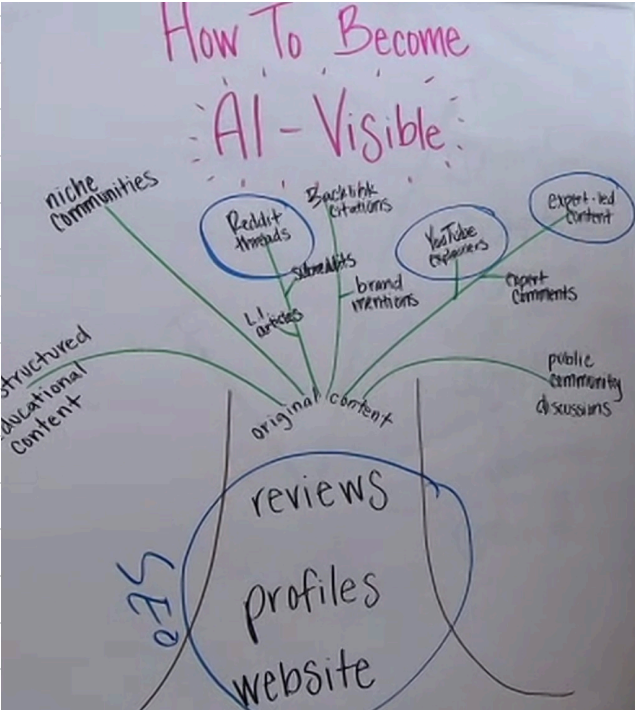 How To Become
AI-Visible
niche
communities
Reddit
threads
Backlink
citations
YouTube
explainers
expert-led
content
subreddits
L.I.
articles
brand
mentions
expert
comments
structured
educational
content
public
community
discussions
original content
reviews
profiles
website
SEO